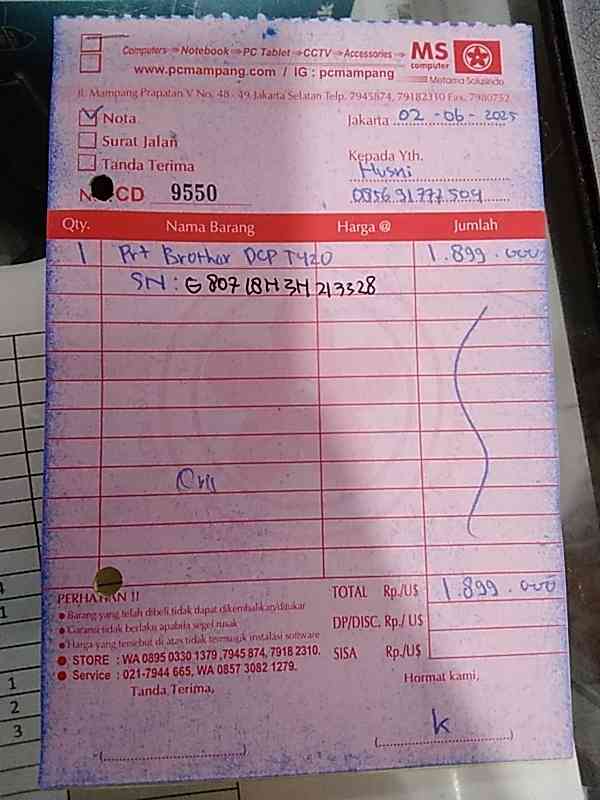 Computers Notebook PC Tablet CCTV Accessories
MS
computer
www.pcmampang.com / IG : pcmampang
Metama Solusindo
Jl. Mampang Prapatan V No. 48 - 49 Jakarta Selatan Telp. 7945874, 79182310 Fax. 7980752
Nota
Jakarta 02 - 06 - 2025
Surat Jalan
Kepada Yth.
Tanda Terima
Husni
CD 9550
085691777504
Qty. Nama Barang Harga @ Jumlah
1 Prt Brother DCP T420 1.899.000
SN : G80718H3H213328
PERHATIAN !!
Barang yang telah dibeli tidak dapat dikembalikan/ditukar
Garansi tidak berlaku apabila segel rusak
Harga yang tersebut di atas tidak termasuk instalasi software
STORE : WA 0895 0330 1379 ,7945 874, 7918 2310.
Service : 021-7944 665, WA 0857 3082 1279.
TOTAL Rp./U$ 1.899.000
DP/DISC. Rp./ U$
SISA Rp./U$
Tanda Terima,
Hormat kami,
k
1
2
3